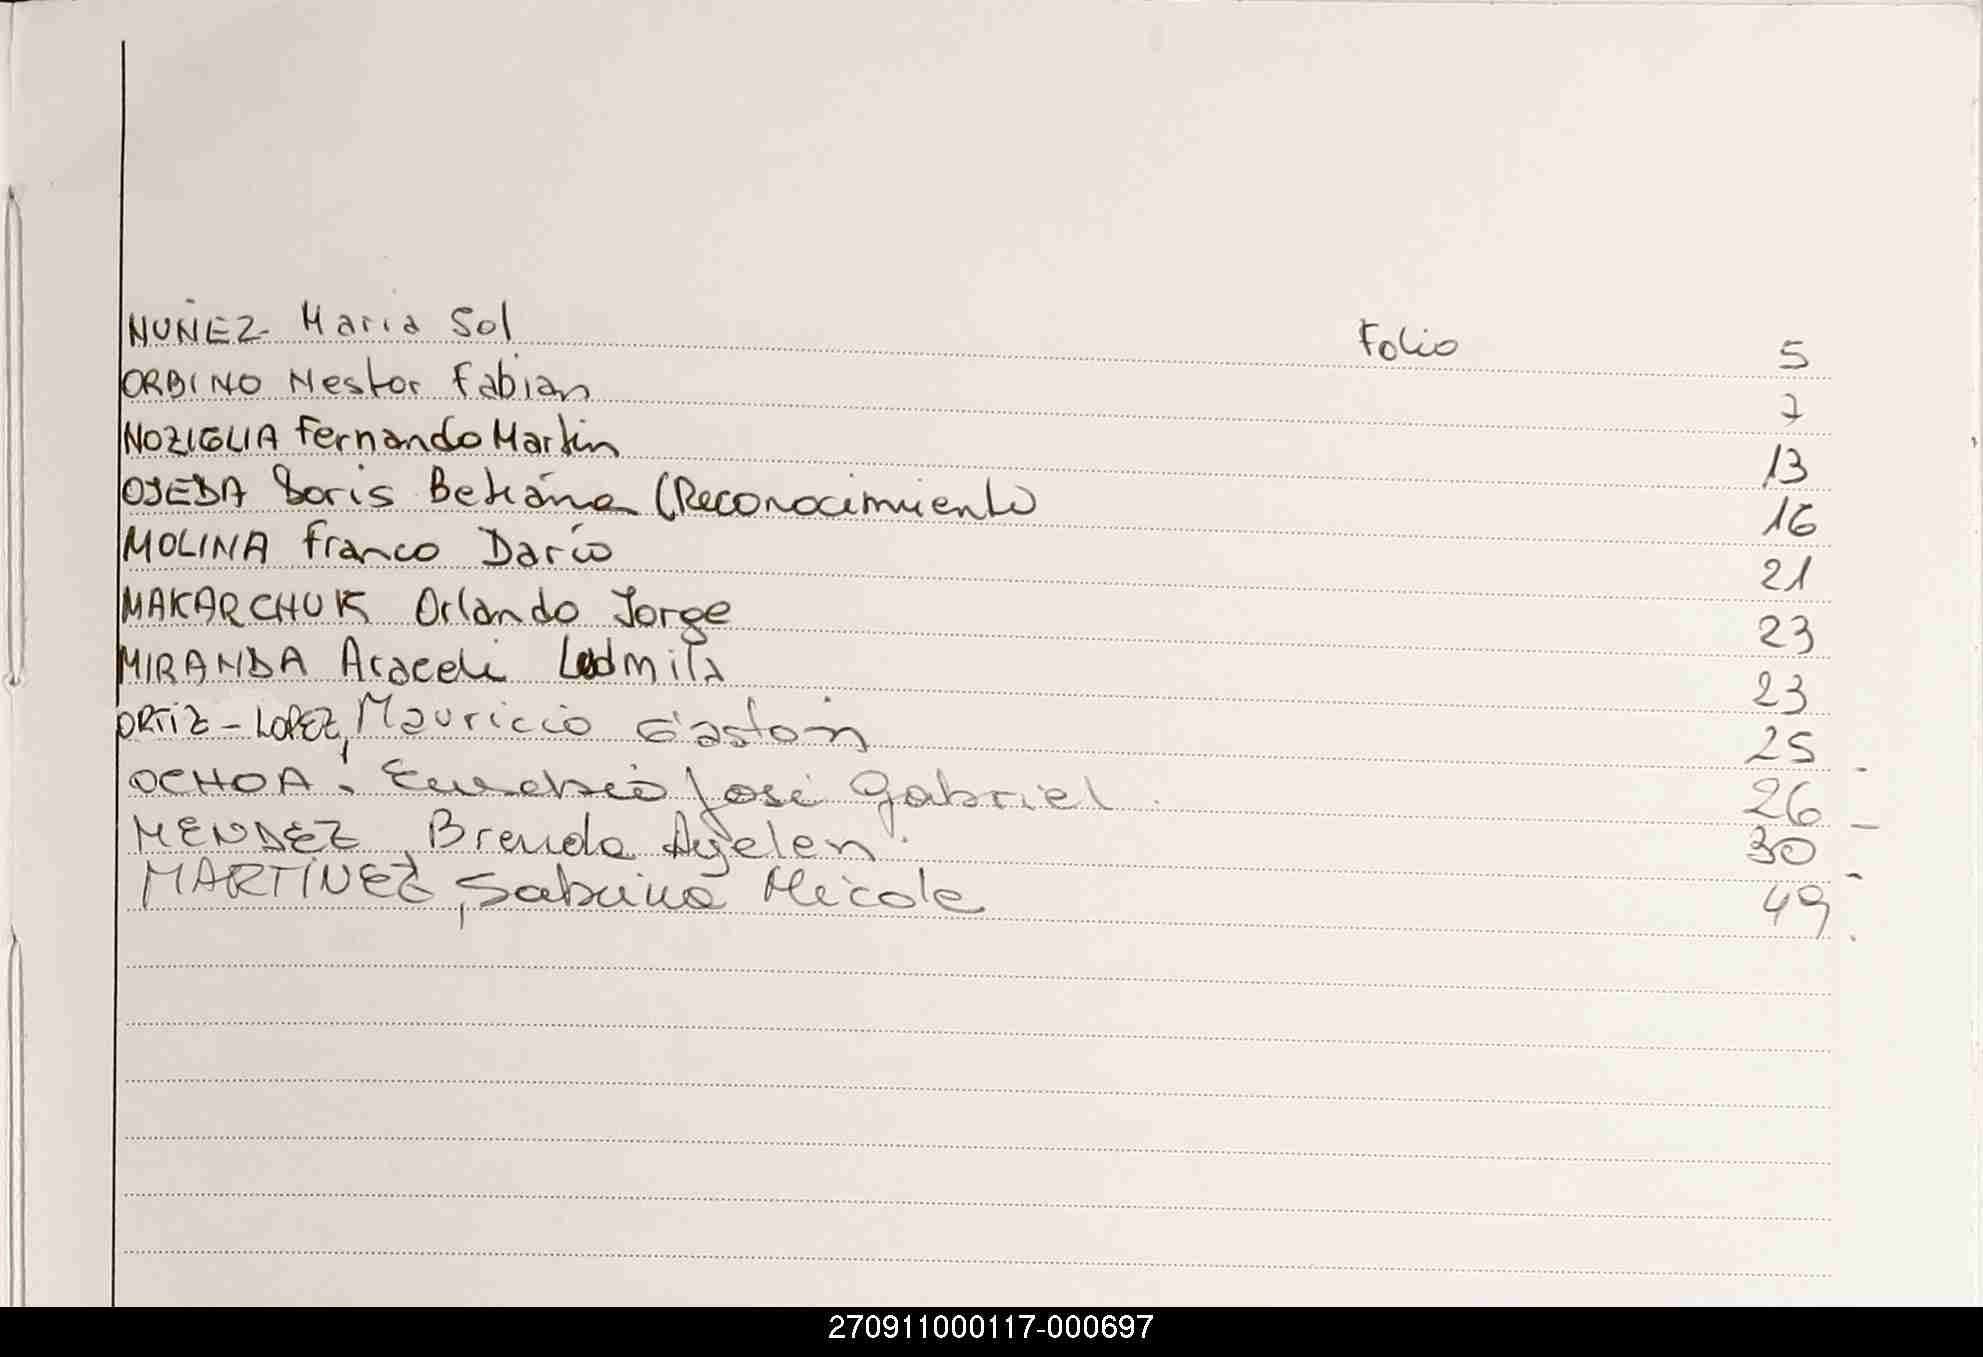 NUÑEZ Maria Sol Folio 5
ORBINO Nestor Fabian 7
NOZIGLIA Fernando Martin 13
OJEDA Doris Betiána (Reconocimiento 16
MOLINA Franco Darío 21
MAKARCHUK Orlando Jorge 23
MIRANDA Araceli Ludmila 23
ORTIZ - LOPEZ, Mauricio Gastón 25 .
OCHOA, Eusebio José Gabriel . 26 -
MENDEZ, Brenda Ayelen . 30 -
MARTÍNEZ, Sabrina Nicole 49 .
270911000117-000697